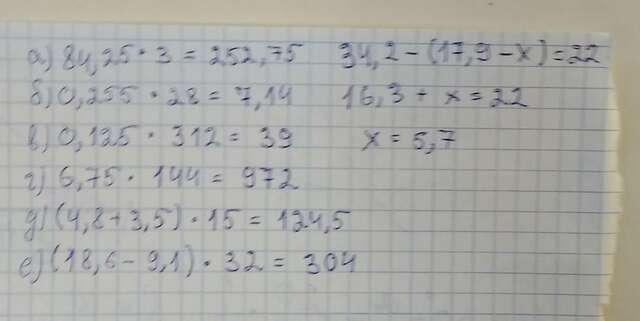 а) 84,25 · 3 = 252,75
б) 0,255 · 28 = 7,14
в) 0,125 · 312 = 39
г) 6,75 · 144 = 972
д) (4,8 + 3,5) · 15 = 124,5
е) (18,6 - 9,1) · 32 = 304
34,2 - (17,9 - x) = 22
16,3 + x = 22
x = 5,7